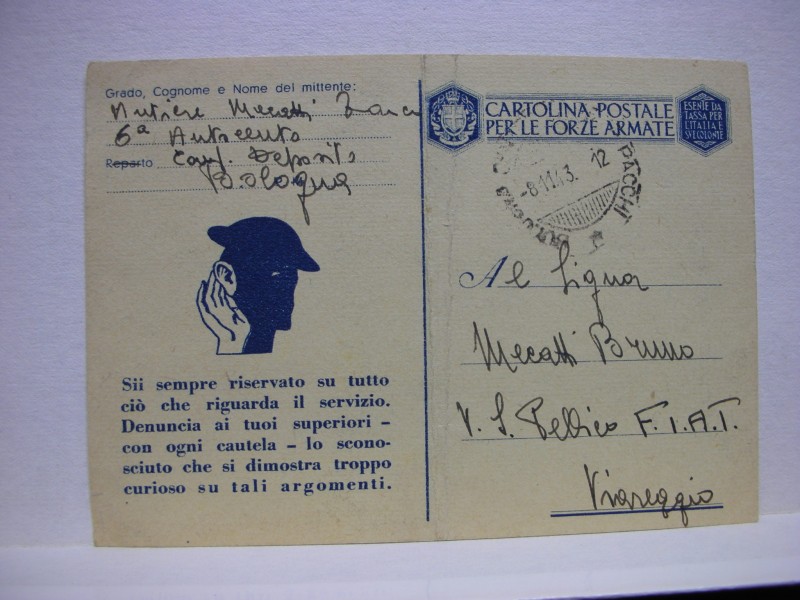 Grado, Cognome e Nome del mittente:
Autiere Mecatti
6ª Autocentro
Reparto Comp. Deposito
Bologna
Sii sempre riservato su tutto
ciò che riguarda il servizio.
Denuncia ai tuoi superiori –
con ogni cautela – lo scono-
sciuto che si dimostra troppo
curioso su tali argomenti.
CARTOLINA POSTALE
PER LE FORZE ARMATE
ESENTE DA
TASSA PER
L'ITALIA E
SUE COLONIE
PACCHI
-8.11.43. 12
Al Signor
Mecatti Bruno
V. S. Pellico F.I.A.T.
Viareggio